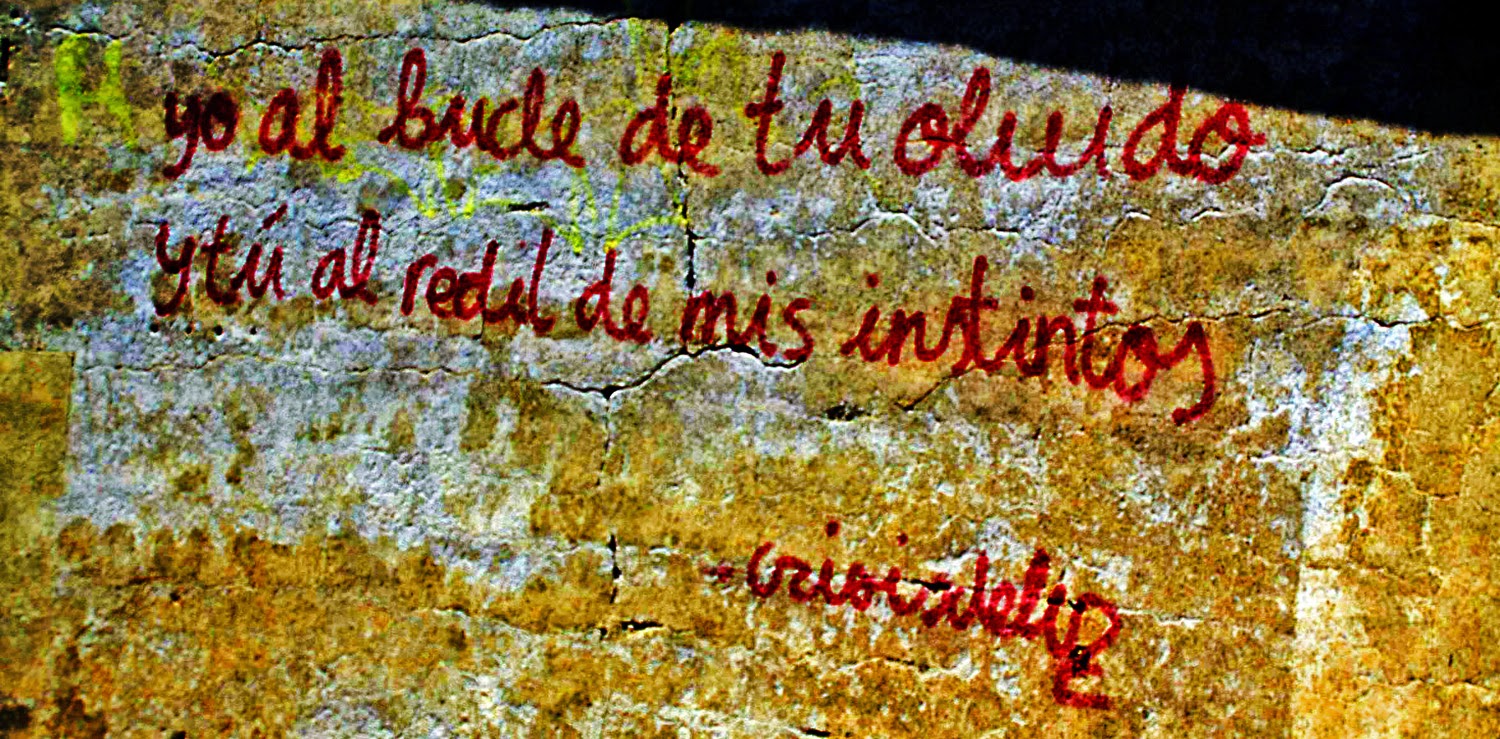 yo al bucle de tu olvido
y tú al redil de mis instintos